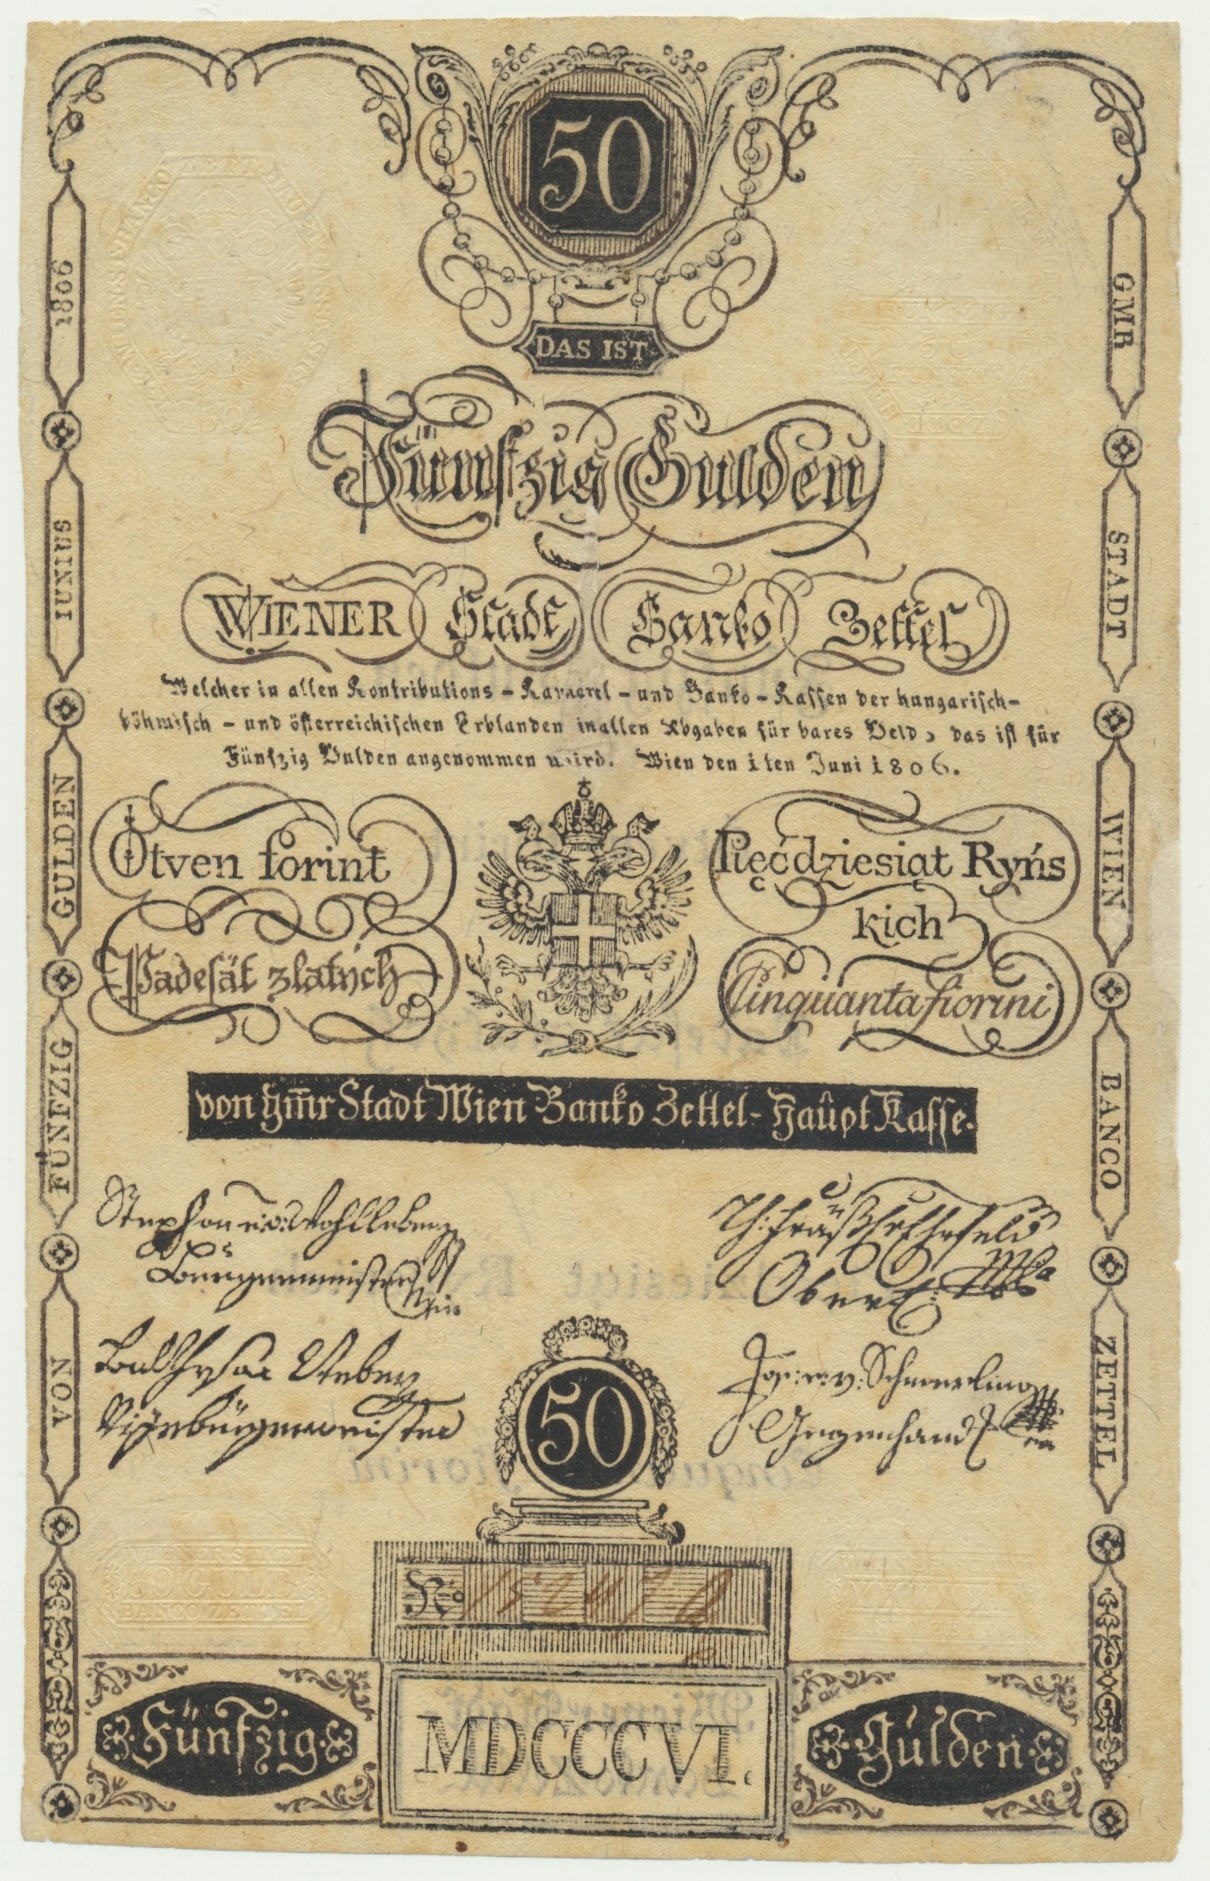 50
DAS IST
Fünfzig Gulden
WIENER Stadt Banko Zettel
Welcher in allen Kontributions – Kameral – und Banko – Kassen der hungarisch–
böhmisch – und österreichischen Erblanden in allen Abgaben für bares Geld, das ist für
Fünfzig Gulden angenommen wird. Wien den 1ten Juni 1806.
Ötven forint
Padesát zlatých
Pięćdziesiąt Ryńs
kich
Cinquanta fiorini
von Gmr Stadt Wien Banko Zettel - Haupt Kasse.
Stephan
Burgermeister
Wien
Vizebürgermeister
Schmerling
Gegenhand
50
No
MDCCCVI.
Fünfzig
Gulden
1806
IUNIUS
GULDEN
FÜNFZIG
VON
GMR
STADT
WIEN
BANCO
ZETTEL